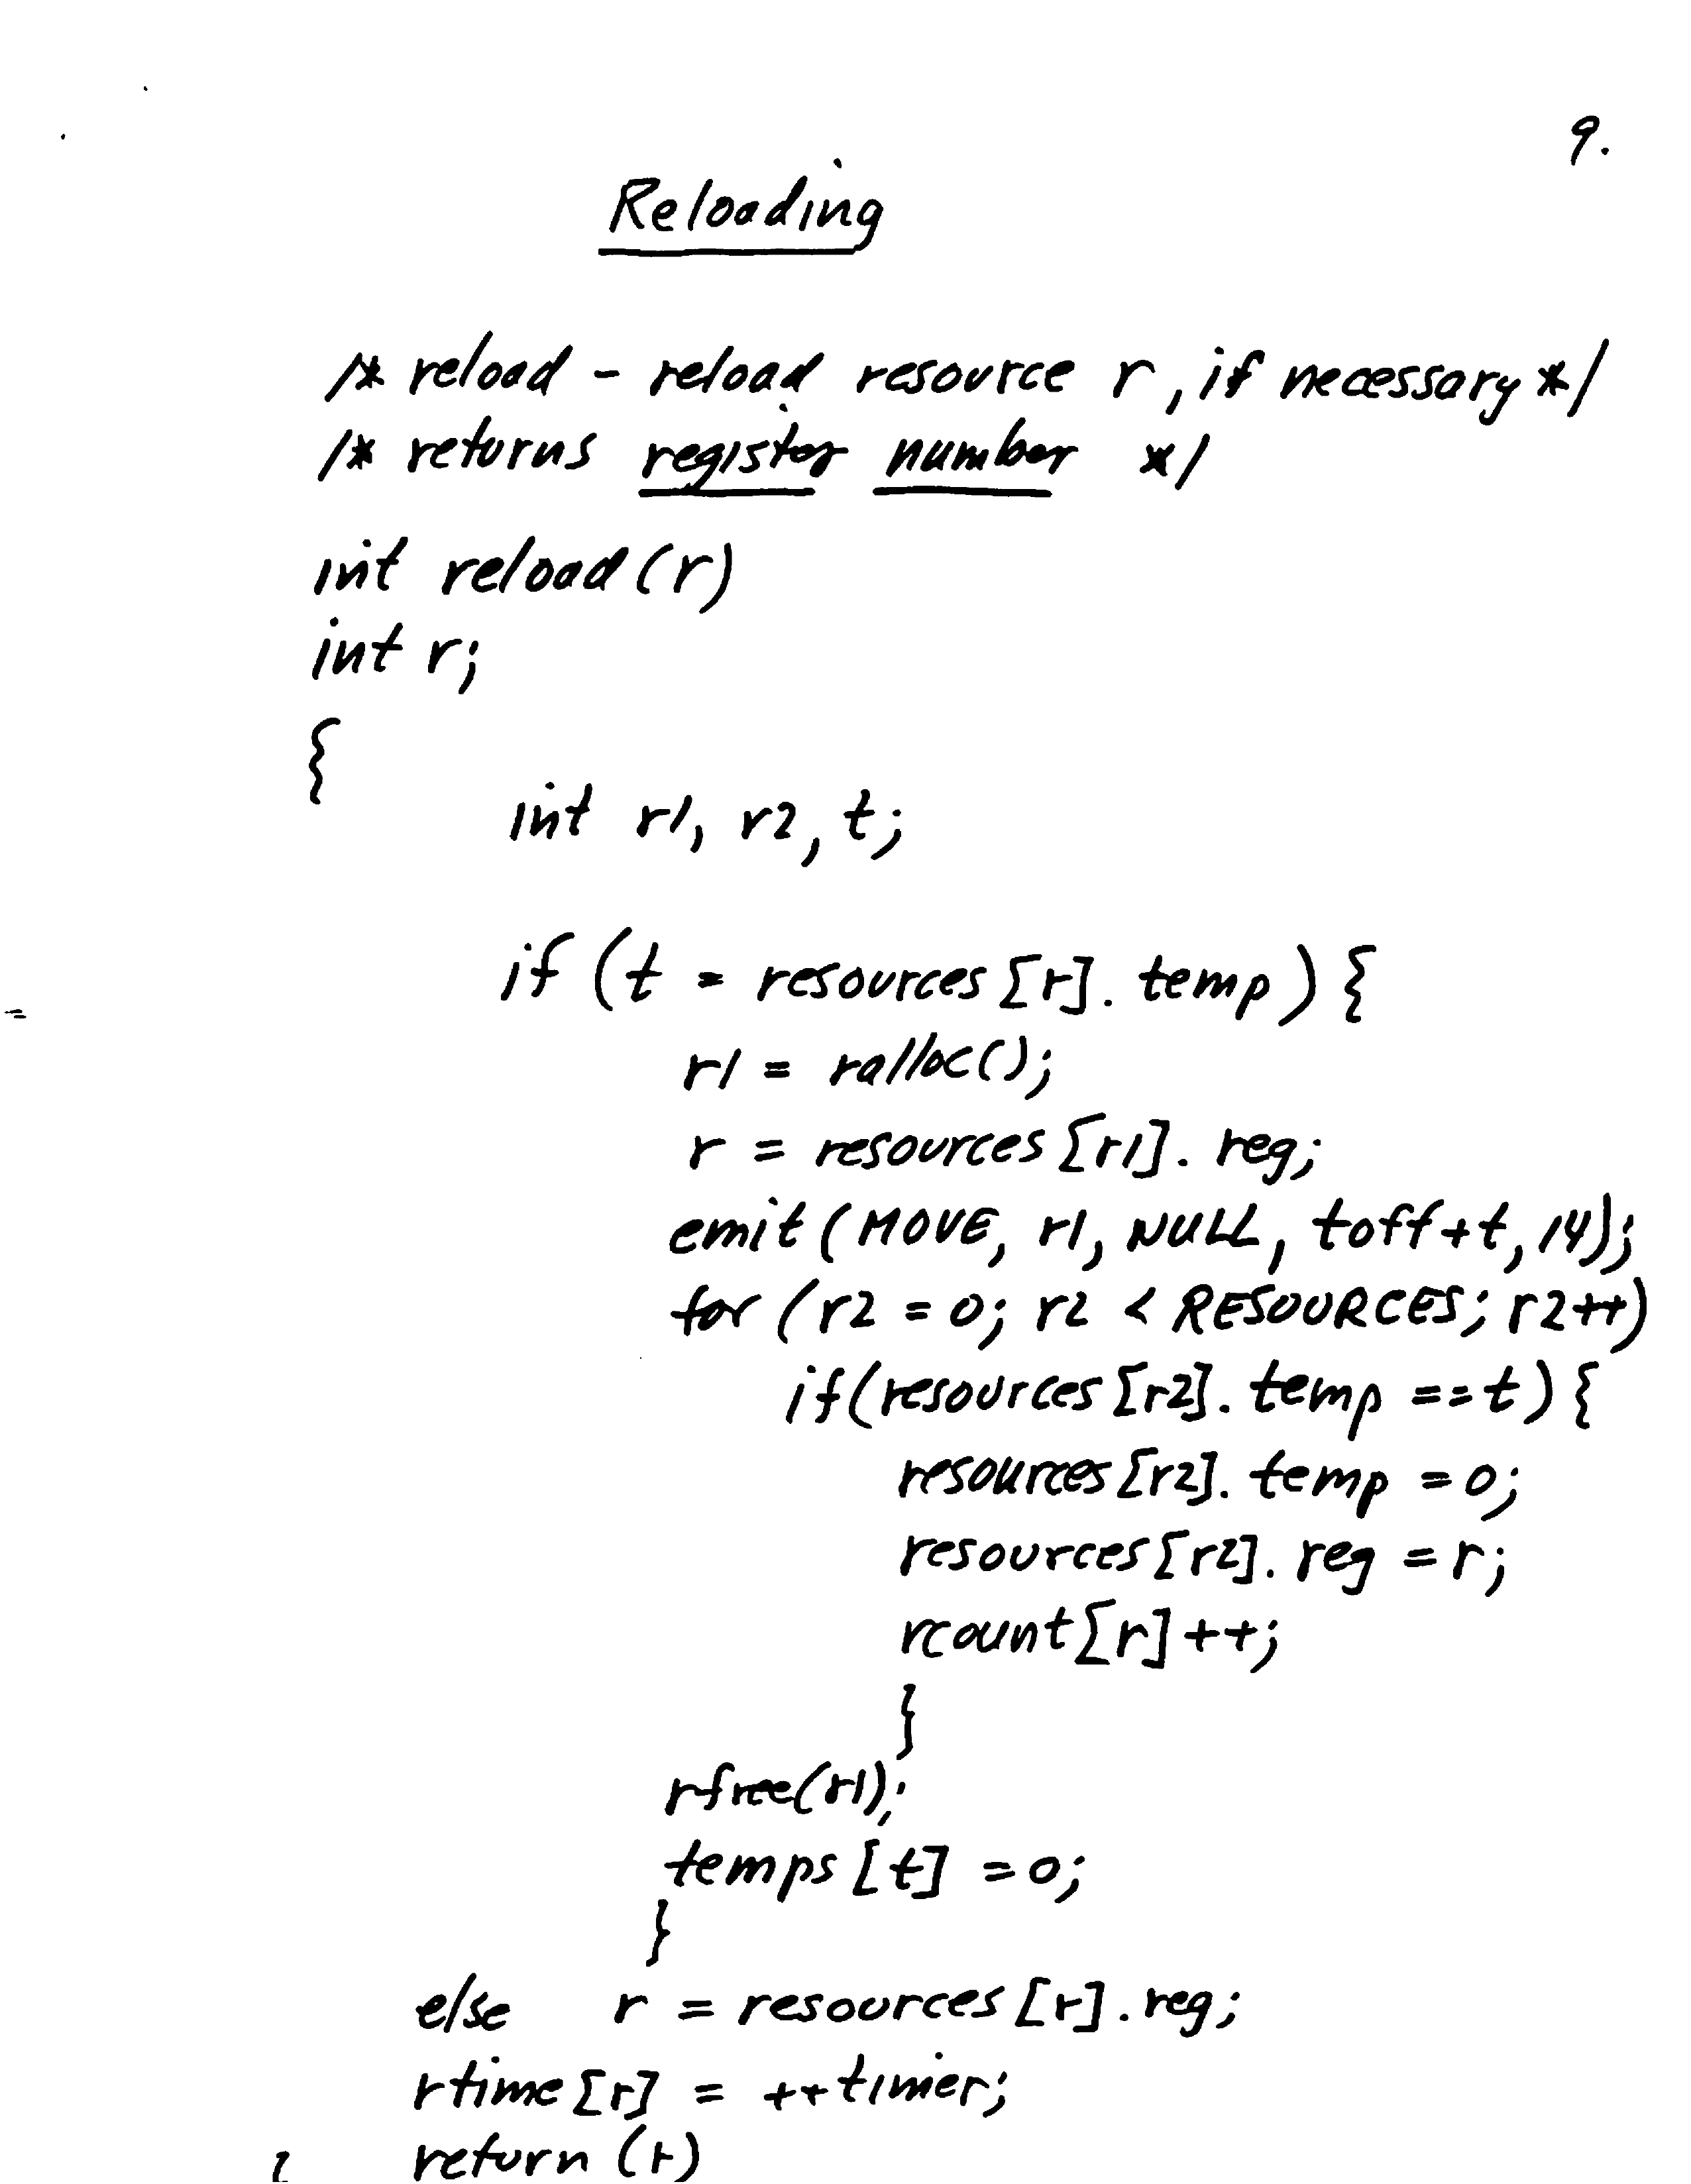 9.
Reloading
/* reload - reload resource r, if necessary */
/* returns register number */
int reload(r)
int r;
{
int r1, r2, t;
if (t = resources[r].temp) {
r1 = ralloc();
r = resources[r1].reg;
emit(MOVE, r1, NULL, toff+t, 14);
for (r2 = 0; r2 < RESOURCES; r2++)
if(resources[r2].temp == t) {
resources[r2].temp = 0;
resources[r2].reg = r;
rcount[r]++;
}
rfree(r1);
temps[t] = 0;
}
else r = resources[r].reg;
rtime[r] = ++timer;
return (r)